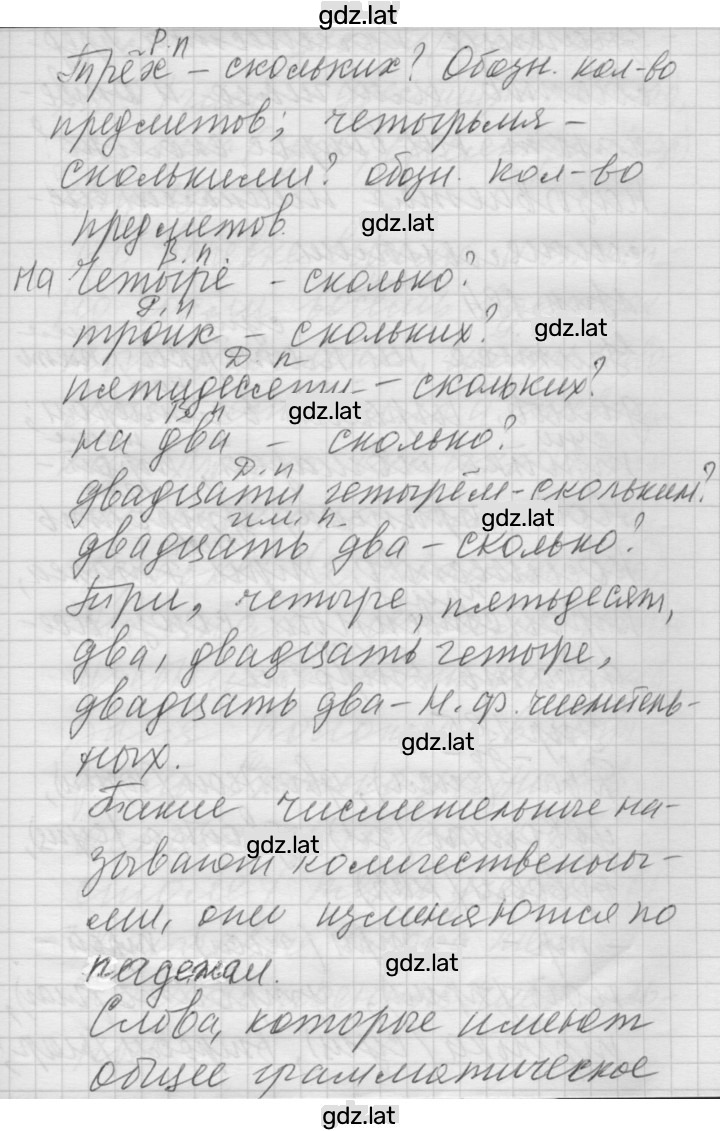 gdz.lat
Р.п
Трёх – скольких? Обозн. кол-во
предметов; четырьмя –
сколькими? обозн. кол-во
предметов. gdz.lat
В. п.
на четыре – сколько?
Д. п
троих – скольких? gdz.lat
Д. п
пятидесяти – скольких?
gdz.lat
В. п
на два – сколько?
Д. п
двадцати четырём – скольким?
им. п. gdz.lat
двадцать два – сколько?
Три, четыре, пятьдесят,
два, двадцать четыре,
двадцать два – н. ф. числитель-
gdz.lat
ных.
Такие числительные на-
gdz.lat
зывают количественны-
ми, они изменяются по
падежам. gdz.lat
Слова, которые имеют
общее грамматическое
gdz.lat